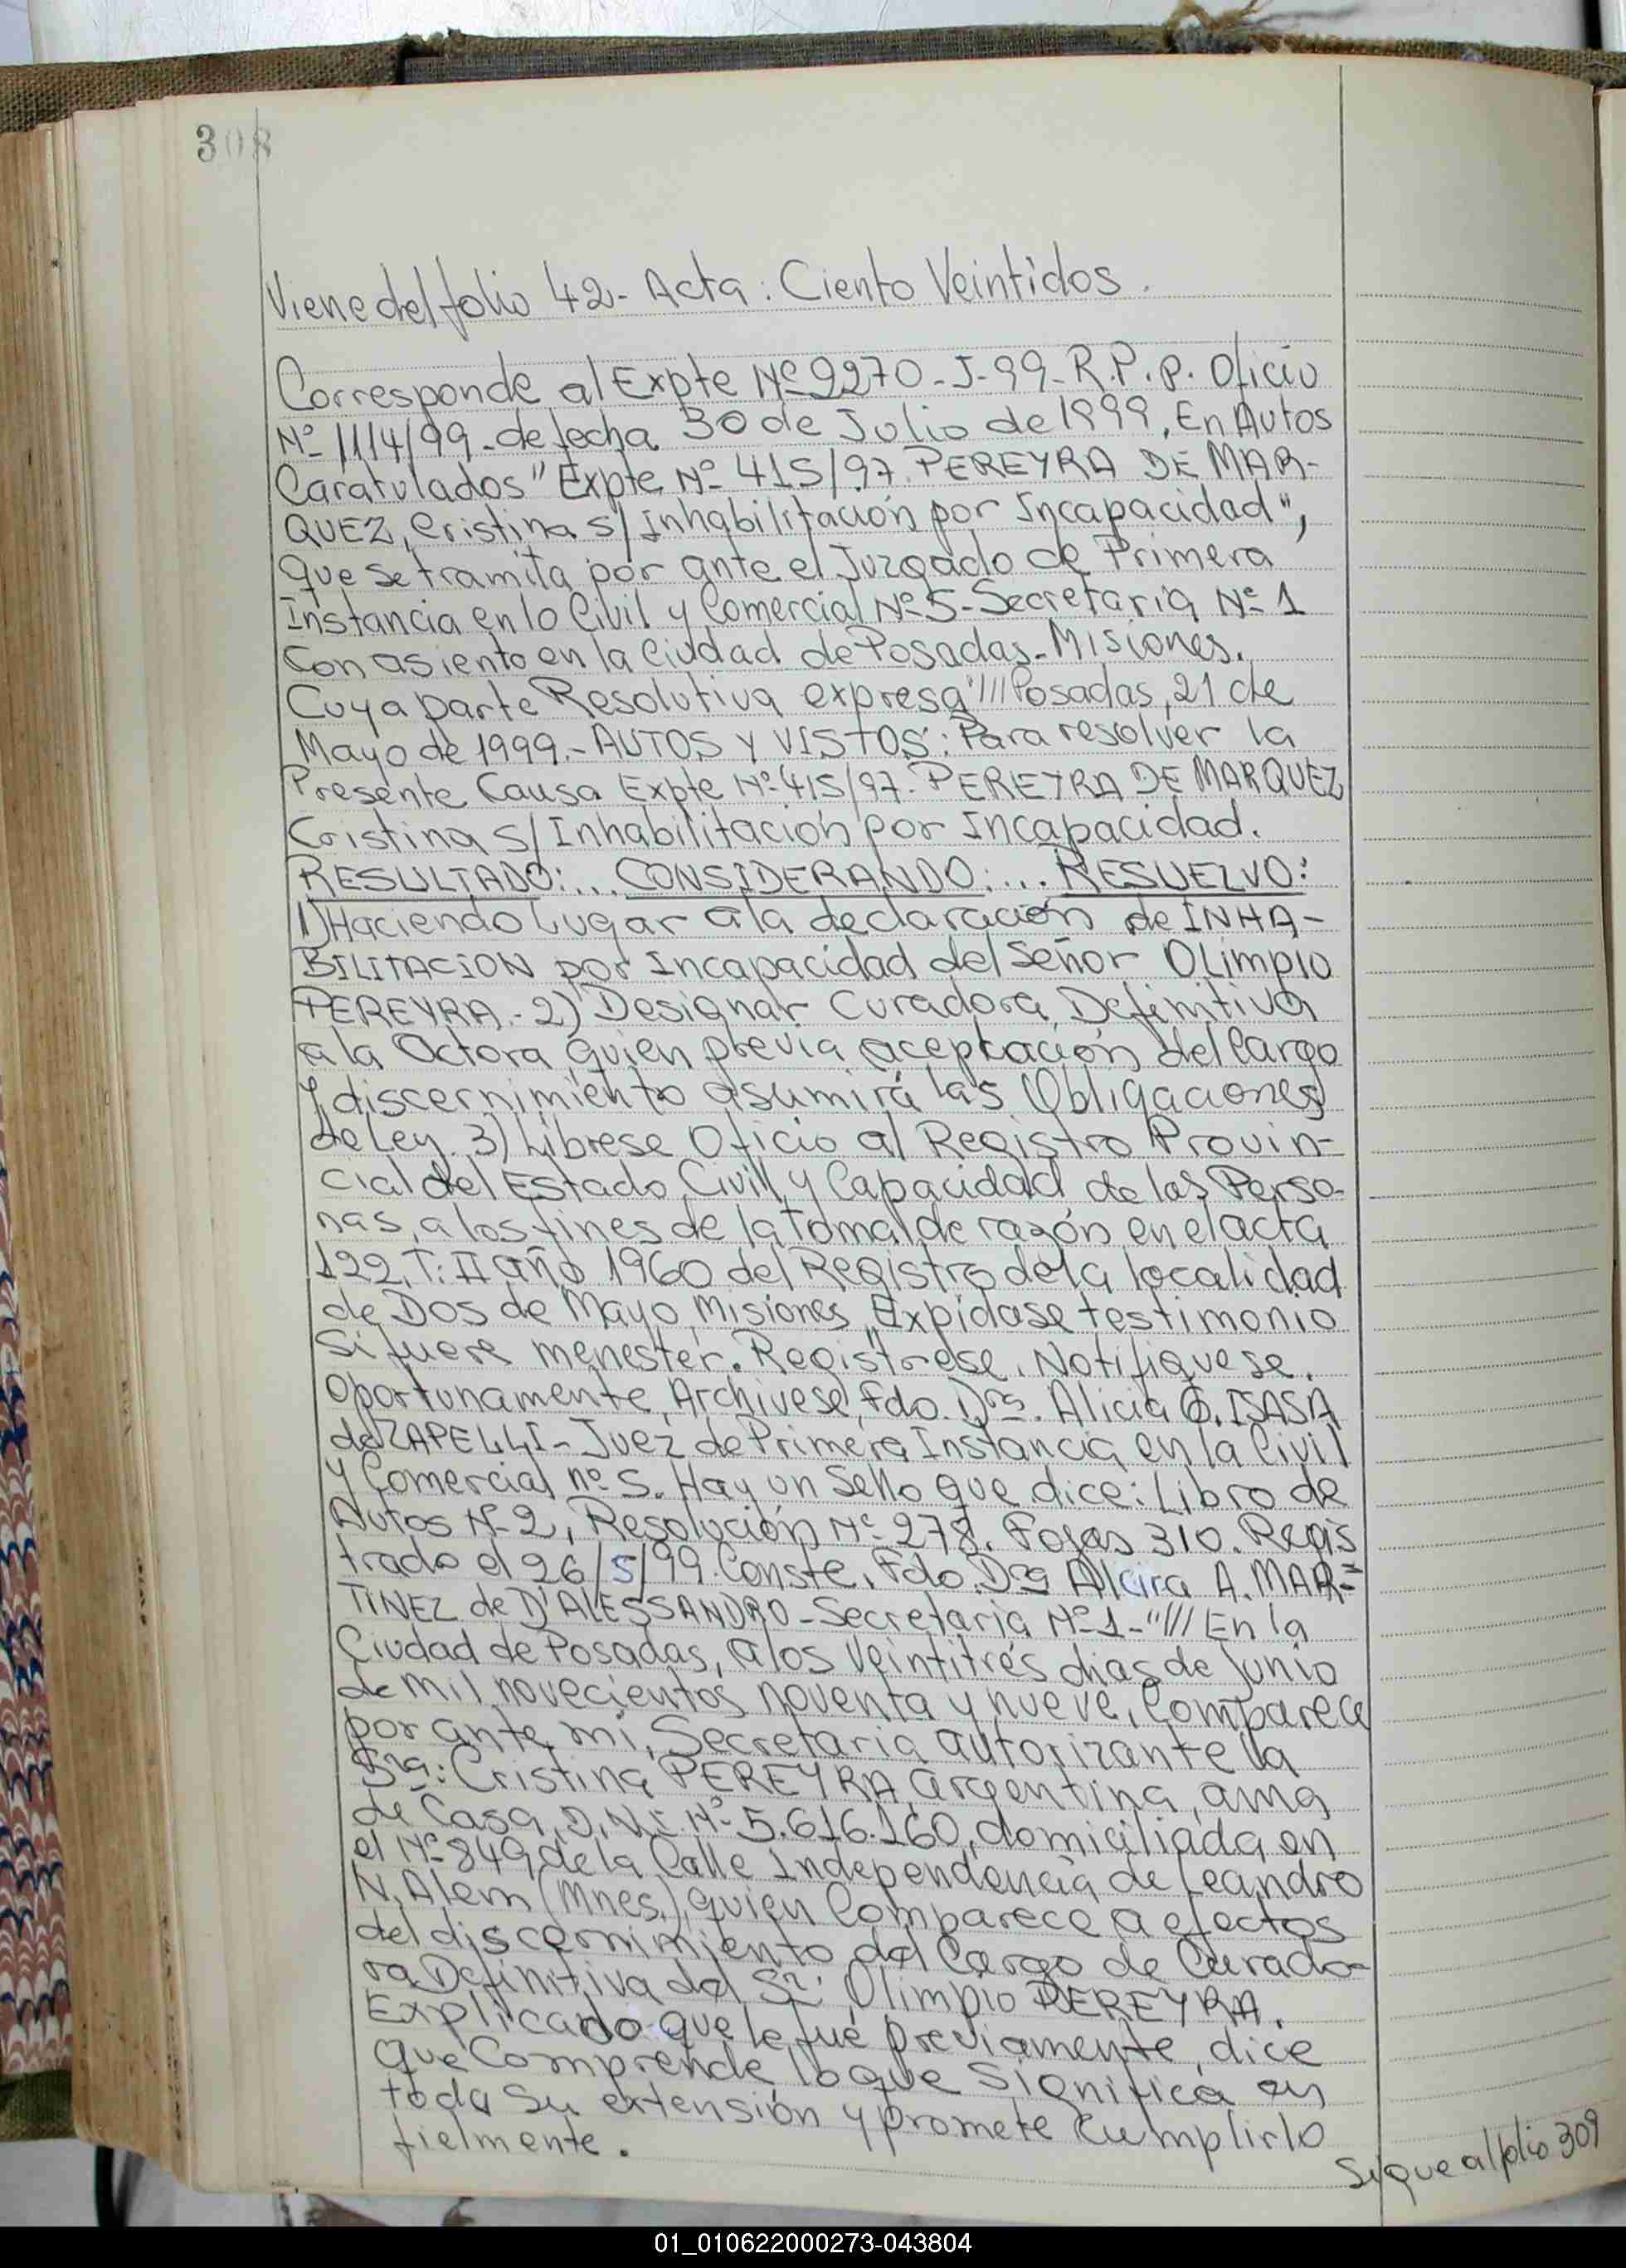 308
Viene del folio 42- Acta: Ciento Veintidos.
Corresponde al Expte Nº 9270-J-99-R.P.P. Oficio
Nº 1114/99-de fecha 30 de Julio de 1999, En Autos
Caratulados "Expte Nº 415/97. PEREYRA DE MAR-
QUEZ, Cristina s/Inhabilitación por Incapacidad",
Que se tramita por ante el Juzgado de Primera
Instancia en lo Civil y Comercial Nº 5-Secretaria Nº 1
Con asiento en la Ciudad de Posadas-Misiones.
Cuya parte Resolutiva expresa "///Posadas, 21 de
Mayo de 1999.- AUTOS Y VISTOS: Para resolver la
Presente Causa Expte Nº 415/97. PEREYRA DE MARQUEZ
Cristina s/Inhabilitación por Incapacidad.
RESULTADO:... CONSIDERANDO:... RESUELVO:
1) Haciendo Lugar a la declaración de INHA-
BILITACION por Incapacidad del Señor OLimpio
PEREYRA.- 2) Designar Curadora Definitiva
a la Actora quien previa aceptación del Cargo
y discernimiento asumirá las Obligaciones
de Ley. 3) Líbrese Oficio al Registro Provin-
cial del Estado Civil y Capacidad de las Perso-
nas, a los fines de la Toma de razón en el acta
122, T: II año 1960 del Registro de la localidad
de Dos de Mayo, Misiones, Expídase testimonio
Si fuere menester. Regístrese. Notifiquese.
Oportunamente, Archivese", Fdo. Dra. Alicia O. ISASA
de ZAPELLI-Juez de Primera Instancia en la Civil
y Comercial nº 5. Hay un Sello que dice: Libro de
Autos Nº 2, Resolución Nº 278. Fojas 310. Regis
trado el 26/5/99. Conste. Fdo. Dra Alcira A. MAR=
TINEZ de D'ALESSANDRO-Secretaria Nº 1-"/// En la
Ciudad de Posadas, a los Veintitrés dias de Junio
de mil novecientos noventa y nueve, Comparece
por ante mi, Secretaria autorizante la
Sra: Cristina PEREYRA, argentina, ama
de Casa, D.N.I. Nº 5.616.160, domiciliada en
el Nº 849 de la Calle Independencia de Leandro
N. Alem (Mnes.), quien Comparece a efectos
del discernimiento del Cargo de Curado-
ra Definitiva del Sr: Olimpio PEREYRA.
Explicado que le fué previamente, dice
que Comprende lo que Significa en
toda Su extensión y promete Cumplirlo
fielmente.
Sigue al folio 309
01_010622000273-043804